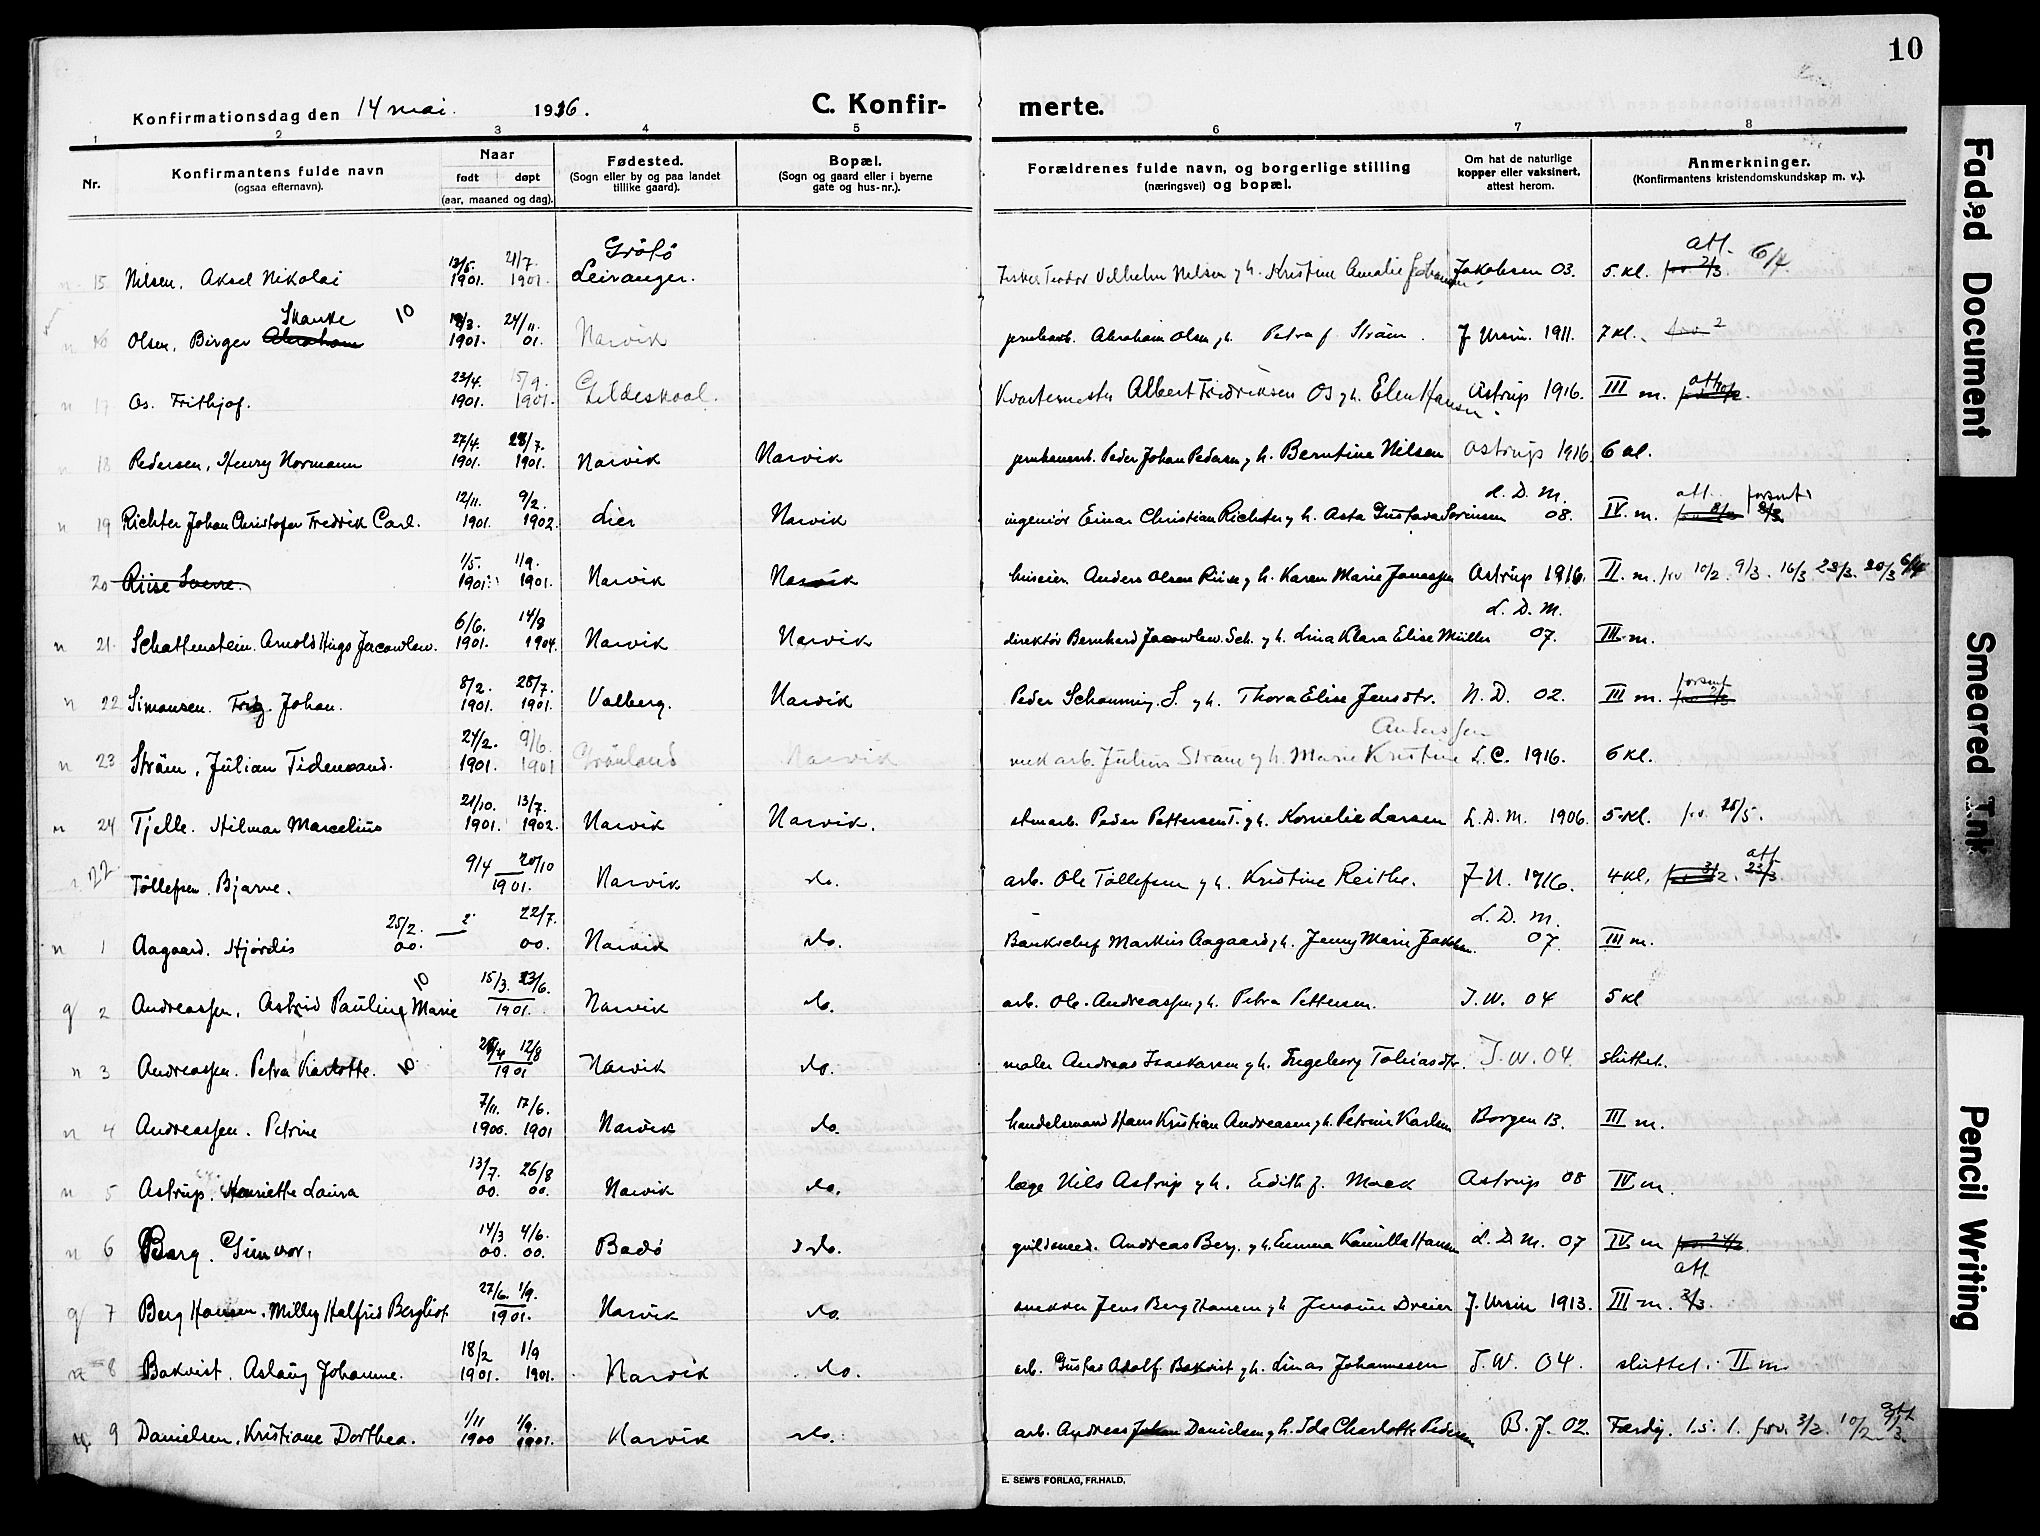 10
Konfirmationsdag den 14 mai. 1916.
C. Konfir-
merte.
1 2 3 4 5 6 7 8
Nr.
Konfirmantens fulde navn
(ogsaa efternavn).
Naar
født døpt
(aar, maaned og dag).
Fødested.
(Sogn eller by og paa landet
tillike gaard).
Bopæl.
(Sogn og gaard eller i byerne
gate og hus-nr.).
Forældrenes fulde navn, og borgerlige stilling
(næringsvei) og bopæl.
Om hat de naturlige
kopper eller vaksinert,
attest herom.
Anmerkninger.
(Konfirmantens kristendomskundskap m. v.).
21/7. Grötö att. 6/4
15 Nilsen, Aksel Nikolai 1901. 1901. Leiranger. Teodor Vilhelm Nilsen g h. Kristine Amalie Jakobsen 03. 5. kl.
Skanke 10 24/11.
16 Olsen, Birger Abraham 1901. 01. Narvik Abraham Olsen g h. Petra f. Ström. J Ursin. 1911. 7 kl.
23/4. 15/9. att
n 17 Os. Frithjof. 1901. 1901. Gildeskaal. Albert Fredriksen Os g h. Elen Hansen. Astrup 1916. III m.
27/4. 28/7.
n 18 Pedersen, Henry Normann 1901. 1901. Narvik Narvik Peder Johan Pedersen g h. Berntine Nilsen Astrup 1916 6 kl.
12/11. 9/2. L. D. M. att. forsømt
n 19 Richter Johan Christofer Fredrik Carl. 1901. 1902. Lier Narvik ingeniör Einar Christian Richter g h. Asta Gustava Sörensen 08. IV. m.
1/5. 1/9.
20 Riise Sverre. 1901. 1901. Narvik Narvik Anders Olsen Riise g h. Karen Marie Astrup 1916. II. m. frv 10/2. 9/3. 16/3 23/3.
6/6. 14/8 L. D. M.
n 21. Schattenstein. Arnold Hugo Jacowlew. 1901. 1904. Narvik Narvik direktör Bernhard Jacowlew. Sch. g h. Lina Klara Elise Müller 07. III m.
8/2. 28/7. forsømt
n 22 Simonsen. Johan. 1901. 1901. Valberg. Narvik Peder Schanning. S. g h. Thora Elise Jensdtr. N. D. 02. III m.
24/2. 9/6. Anderssen
n 23 Ström, Julian Tidemand. 1901. 1901 Grönland Narvik arb. Julius Ström g h. Marie Kristine L. C. 1916. 6 kl.
21/10. 13/7.
n 24 Tjelle. Hilmar Marcelius 1901. 1902. Narvik Narvik. Peder Pettersen T. g h. Kornelie Larsen L. D. M. 1906. 5 kl. frv. 25/5.
9/4 20/10 att
22 Tollefsen. Bjarne. 1901. Narvik do. arb. Ole Tollefsen g h. Kristine Reithe. J N. 1916. 4 kl. 23/3.
25/2. 22/7. L. D. M.
n 1 Aagaard. Hjördis 00. 00. Narvik do. Bankchef Markus Aagaard g h. Jenny Marie 07. III m.
10 15/3. 23/6.
g 2 Andreassen. Astrid Pauline Marie 1901. Narvik do. arb. Ole Andreassen g h. Petra Pettersen. J. W. 04 5 kl
12/8
n 3 Andreassen. Petra Karlotte. 10. 1901 Narvik do. maler Andreas Isaksen g h. Ingeborg Tobiasdtr. J. W. 04. sluttet.
7/11. 17/6.
n 4 Andreassen. Petrine 1900. 1901 Narvik do. handelsmand Hans Kristian Andreasen g h. Petrine Karlsen Borgen 13. III m.
13/7. 26/8
n 5 Astrup. Henriette Laura 00. 00. Narvik do. læge Nils Astrup g h. Edith f. Mack Astrup 08 IV m.
14/3 4/6.
n 6 Berg. Gunvor. 00. 00. Bodö do. guldsmed. Andreas Berg. g h. Emma Kamilla Hansen L. D. M. 07 IV m
27/6. 1/9. att.
g 7 Berg Hansen. Milly Halfrid Bergliot. 1901. Narvik do. Jens Berg Hansen g h Jensine Dreier J. Ursin 1913. III m. 2/3.
18/2 1/9
n 8 Bakvist. Aslaug Johanne. 1901. 1901. Narvik do. arb. Gustav Adolf Bakvist g h. Lina Johannesen J. W. 04. sluttet. II m
1/11 1/9.
n 9 Danielsen. Kristiane Dorthea. 1900 1901. Narvik do. arb. Andreas Johan Danielsen g h. Ida Charlotte Pedersen B. J. 02. Færdig. 1. 5. 1. frv. 3/2. 10/2. 9/3.
E. SEM'S FORLAG, FR.HALD.
Faded Document
Smeared Ink
Pencil Writing